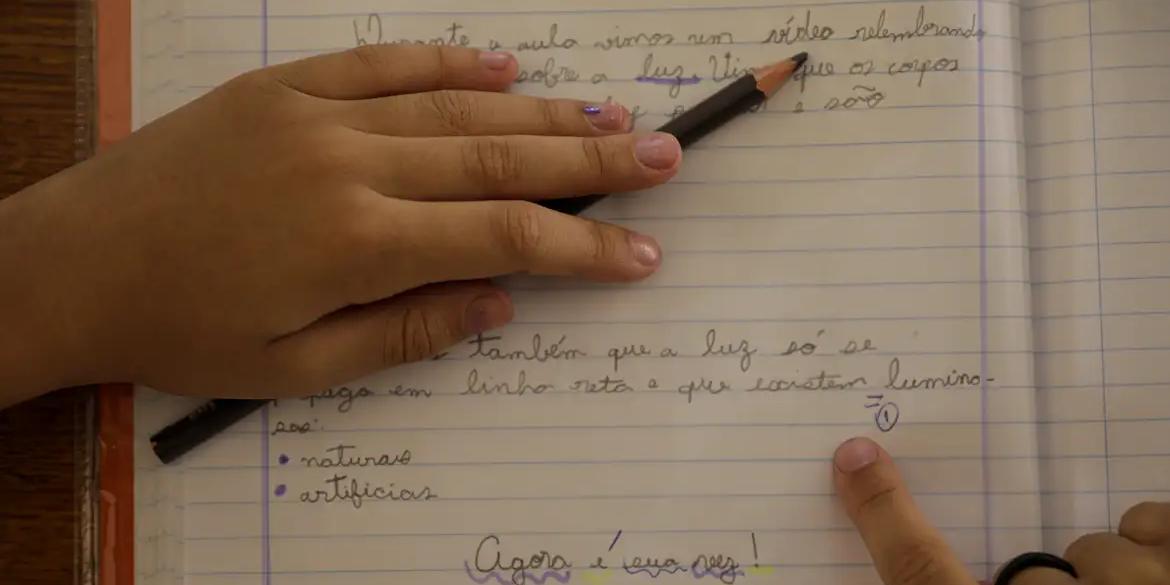 Durante a aula vimos um vídeo relembrando
sobre a luz. que os corpos
e são
também que a luz só se
em linha reta e que existem lumino-
sos:
= ①
• naturais
• artificiais
Agora é sua vez!